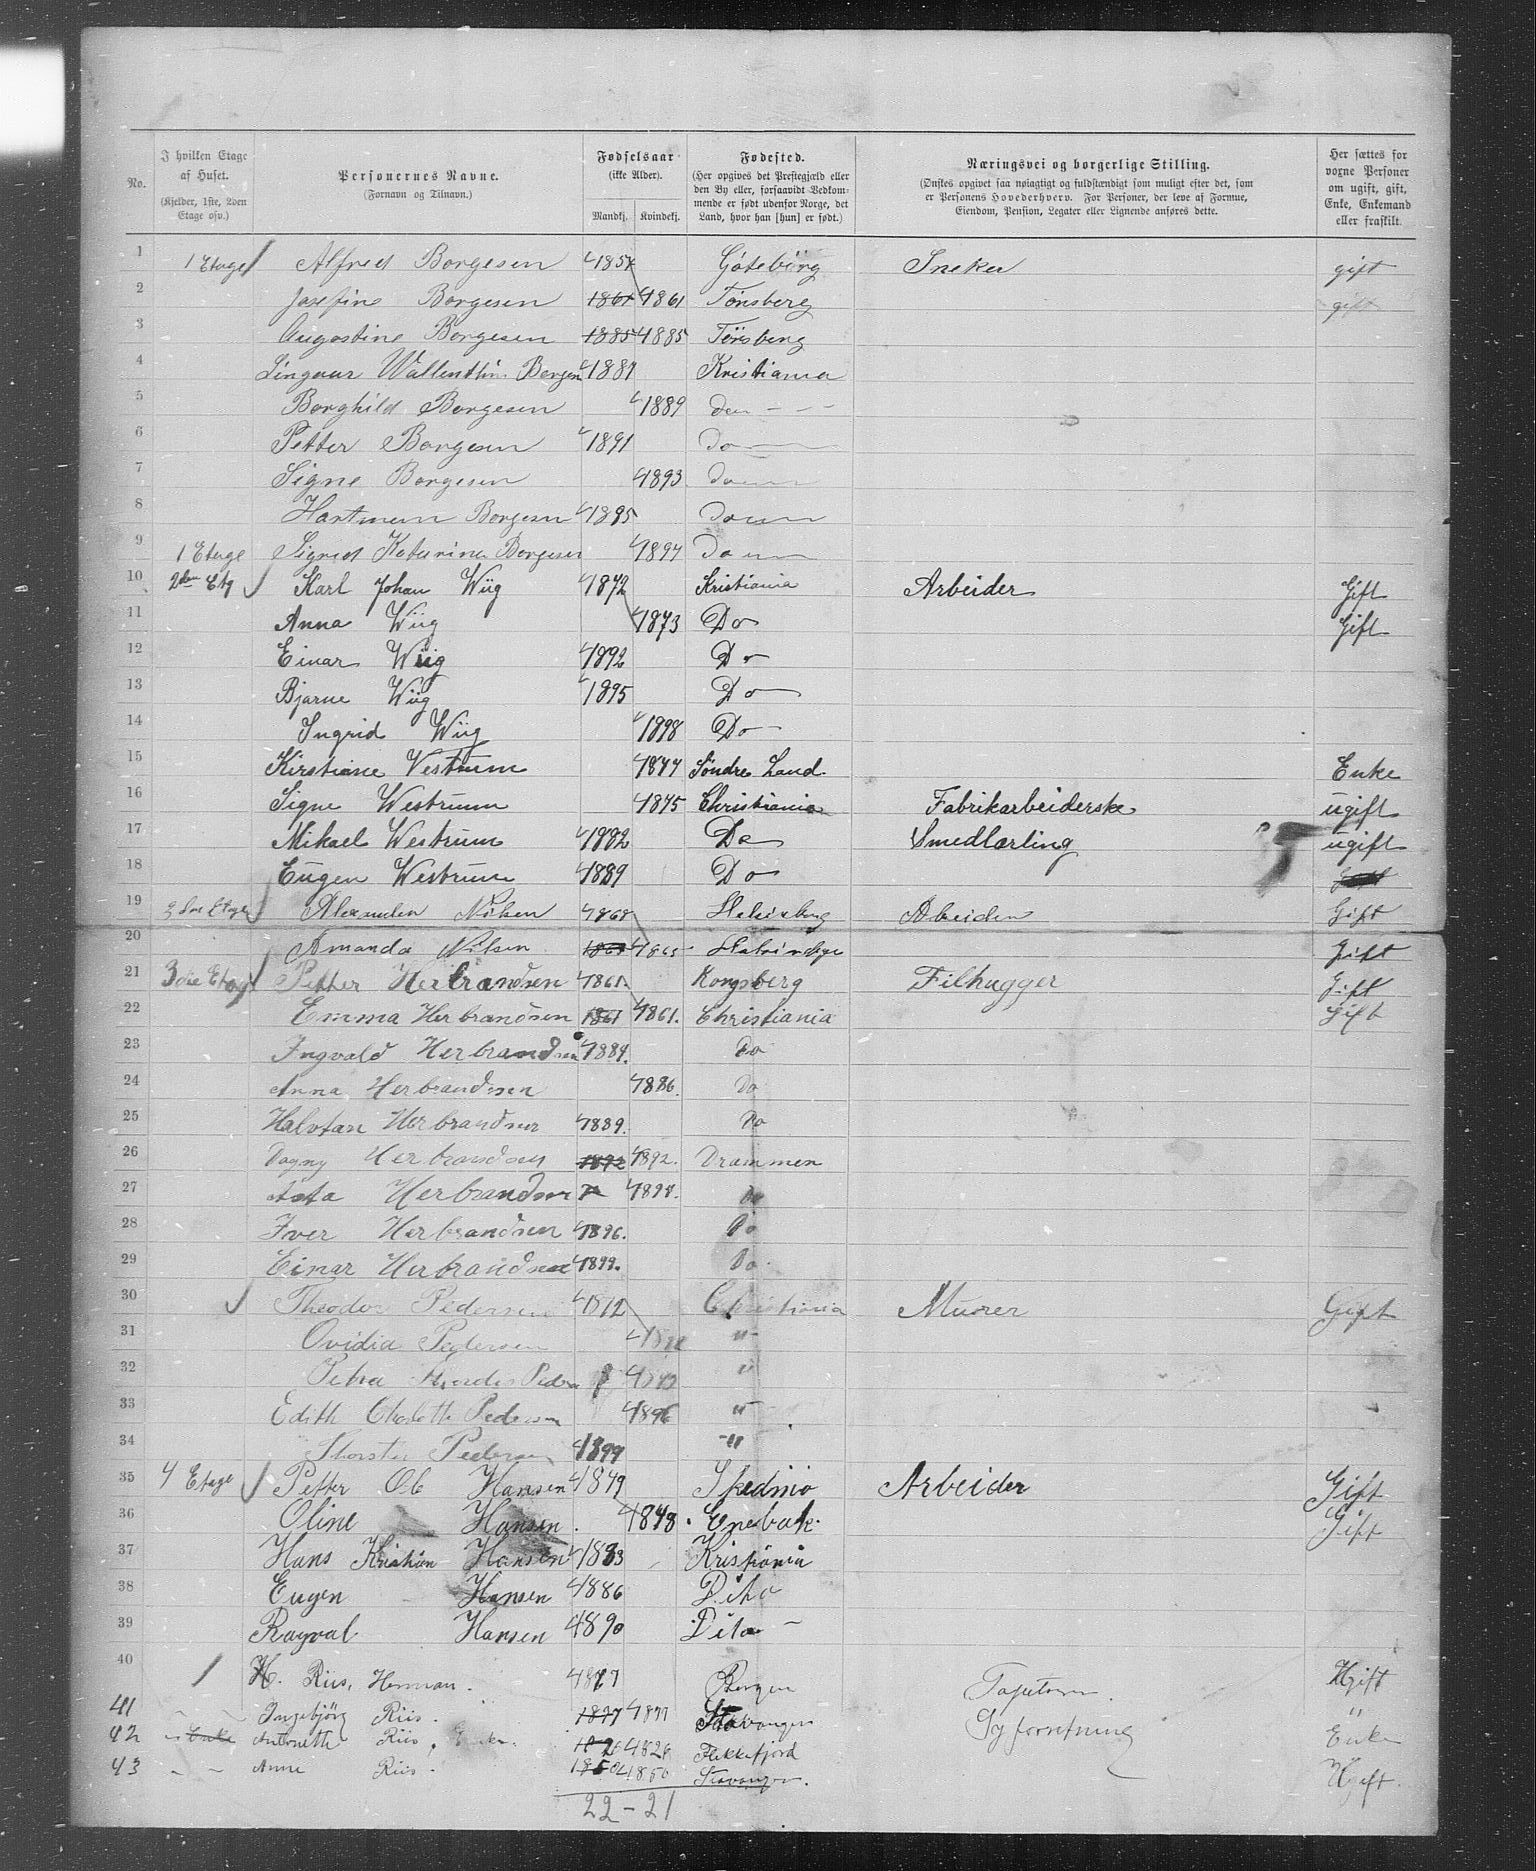 No.
I hvilken Etage af Huset. (Kjelder, 1ste, 2den Etage osv.)
Personernes Navne. (Fornavn og Tilnavn.)
Fødselsaar (ikke Alder). Mandkj. Kvindekj.
Fødested. (Her opgives det Prestegjæld eller den By eller, forsaavidt Vedkommende er født udenfor Norge, det Land, hvor han [hun] er født.)
Næringsvei og borgerlige Stilling. (Ønskes opgivet saa nøiagtigt og fuldstændigt som muligt efter det, som er Personens Hovederhverv. For Personer, der leve af Formue, Eiendom, Pension, Legater eller Lignende anføres dette.
Her sættes for voxne Personer om ugift, gift, Enke, Enkemand eller fraskilt.
1 1 Etage Alfred Borgesen Göteborg Sneker gift
2 Josefine Borgesen 1861 1861 Tønsberg gift
3 Augostine Borgesen 1885 1885 Tönsberg
4 Wallenthin Kristiania
5 Borghild Borgesen 1889 do
6 Petter Borgesen 1891 Do
7 Signe Borgesen 1893 do
8 Hartmann Borgesen 1895 Do
9 1 Etage Sigrid Katarina Borgesen Do
10 2den Etg Karl Johan Wiig 1872 Kristiania Arbeider Gift
11 Anna Wiig 1873 Do Gift
12 Einar Wiig 1892 Do
13 Bjarne Wiig 1895 Do
14 Ingrid Wiig 1898 Do
15 Kirstiane Vestrum Søndre Land. Enke
16 Signe Westrum Christiania Fabrikarbeiderske ugift
17 Mikael Westrum 1882 Do Smedlærling ugift
18 Eugen Westrum 1889 Do
19 Etage Nilsen 1868 Arbeider Gift
20 Amanda Nilsen 1865 Gift
21 3die Etage Petter Herbrandsen 1861. Kongsberg Filhugger Gift
22 Emma Herbrandsen 1861 1861. Christiania Gift
23 Ingvald Herbrandsen 1884. Do
24 Anna Herbrandsen 1886. Do
25 Halvtan Herbrandsen 1889. Do
26 Dagny Herbrandsen 1892 1892. Drammen
27 Asta Herbrandsen Do
28 Iver Herbrandsen 1896. Do
29 Einar Herbrandsen 1899. Do.
30 Theodor Pedersen 1872 Christiania Murer Gift
31 Ovidia Pedersen "
32 Petra "
33 Edith Pedersen 1896 "
34 Pedersen 1899 "
35 4 Etage Petter Ole Hansen 1849 Skedsmo Arbeider Gift
36 Oline Hansen. 1848. Enebak. Gift
37 Hans Kristian Hansen 1883 Kristiania
38 Eugen Hansen 1886 Dito
39 Ragval Hansen 1890 Dito
40 H. Riis, Herman. Bergen Ugift
41 Ingebjörg Riis. 1877 1877 Stavanger Syforretning "
42 Antonette Riis, Enke. Flekkefjord Enke
43 Anne Riis. 1850 1850 Stavanger. Ugift.
22 - 21